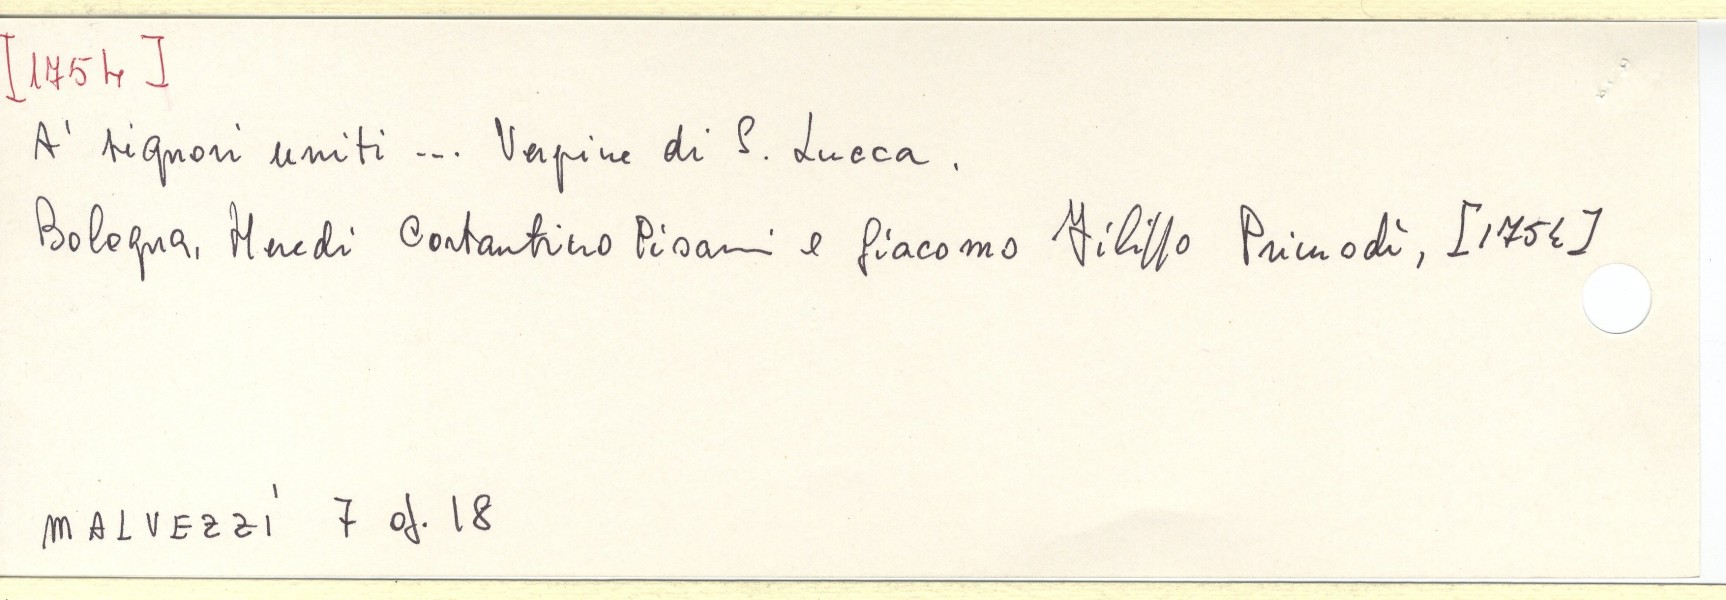 [1754]
A' signori uniti ... Vergine di S. Lucca.
Bologna, Heredi Costantino Pisarri e Giacomo Filippo Primodì, [1754]
MALVEZZI 7 of. 18